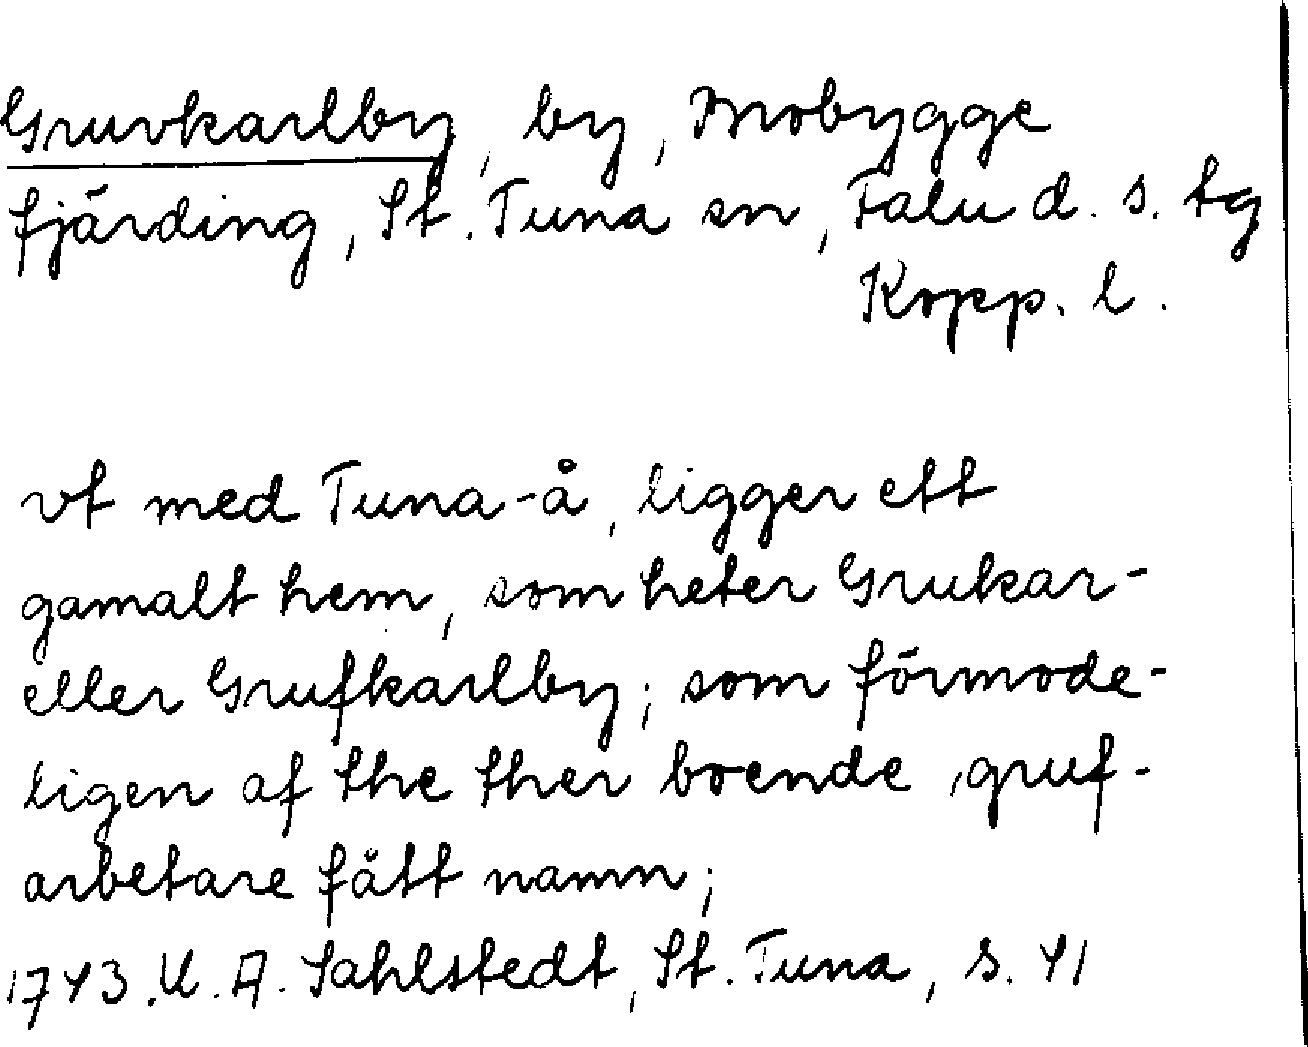 Gruvkarlby, by, Mobygge
fjärding, St. Tuna sn, Falu d. s. tg
Kopp. l.
vt med Tuna-å, ligger ett
gamalt hem, som heter Grukar-
eller Grufkarlby; som förmode-
ligen af the ther boende gruf-
arbetare fått namn;
1743. U. A. Sahlstedt, St. Tuna, s. 41